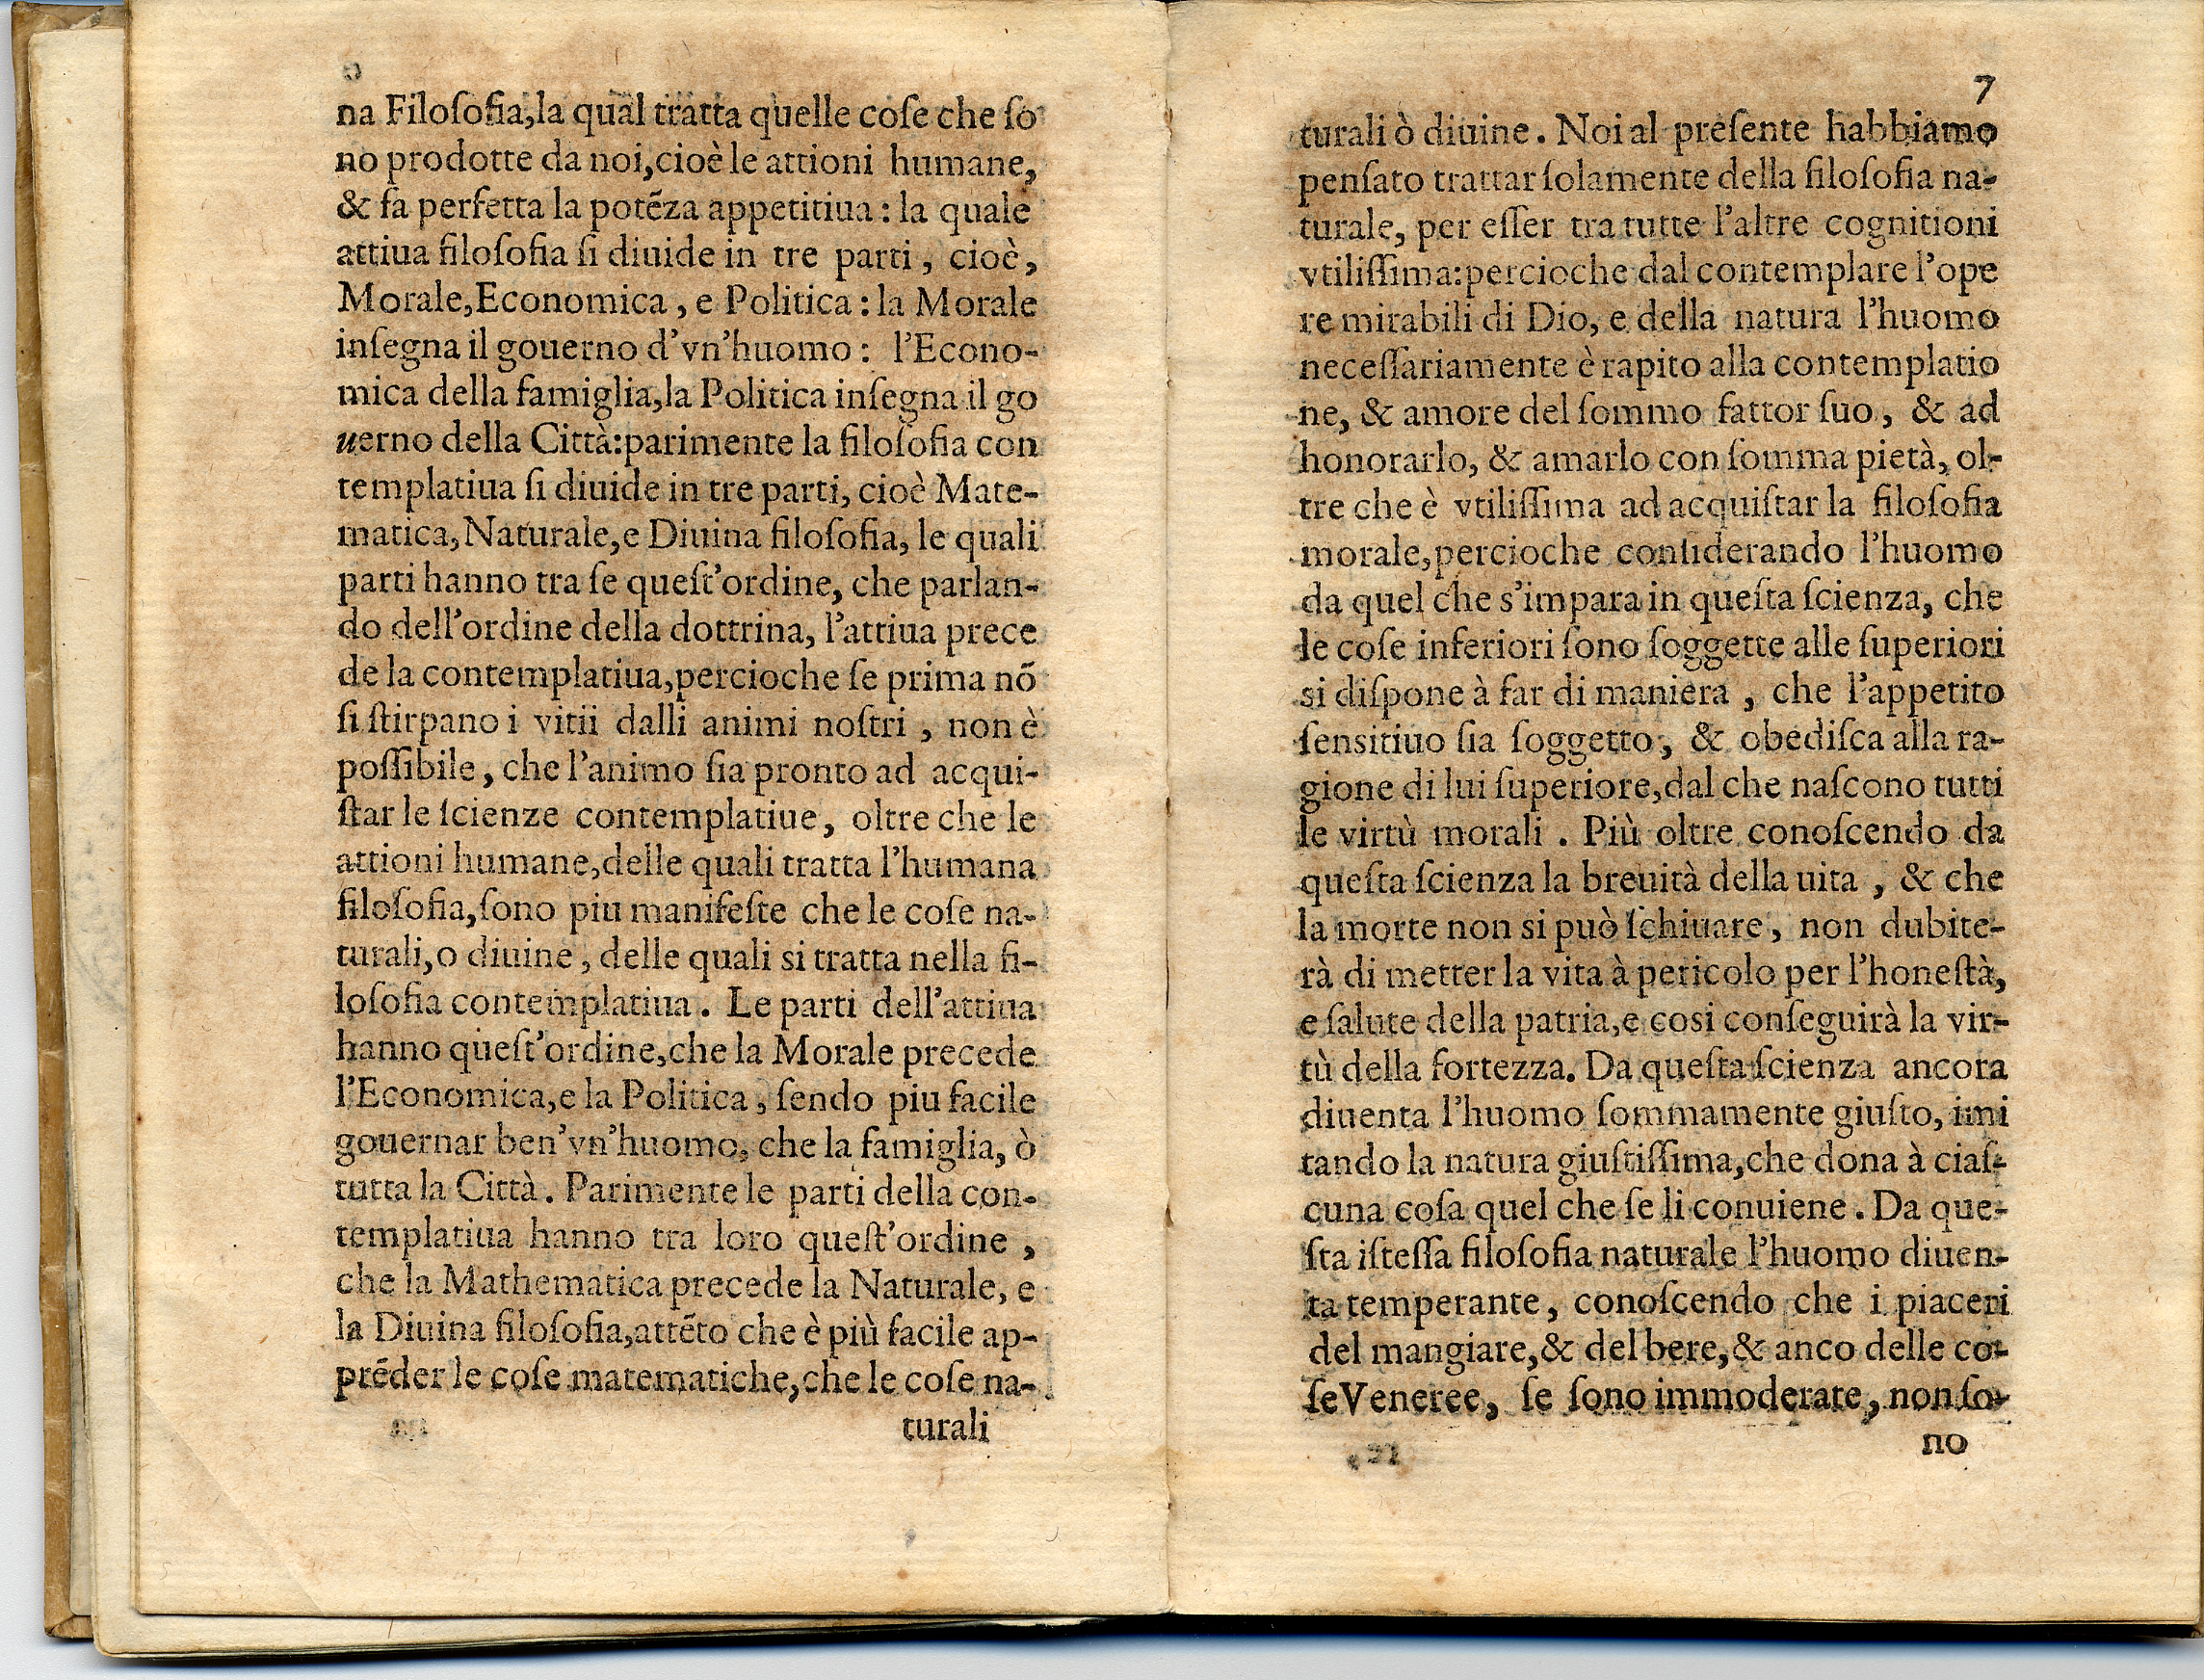 na Filoſofia,la qual tratta quelle coſe che ſo
no prodotte da noi,cioè le attioni humane,
& fa perfetta la potẽza appetitiua : la quale
attiua filoſofia ſi diuide in tre parti , cioè,
Morale,Economica , e Politica : la Morale
inſegna il gouerno d'vn'huomo : l'Econo-
mica della famiglia,la Politica inſegna il go
uerno della Città:parimente la filoſofia con
templatiua ſi diuide in tre parti, cioè Mate-
matica,Naturale,e Diuina filoſofia, le quali
parti hanno tra ſe queſt'ordine, che parlan-
do dell'ordine della dottrina, l'attiua prece
de la contemplatiua,percioche ſe prima nõ
ſi ſtirpano i vitii dalli animi noſtri , non è
poſſibile , che l'animo ſia pronto ad acqui-
ſtar le ſcienze contemplatiue, oltre che le
attioni humane,delle quali tratta l'humana
filoſofia,ſono piu manifeſte che le coſe na-
turali,o diuine , delle quali si tratta nella fi-
loſofia contemplatiua . Le parti dell'attiua
hanno queſt'ordine,che la Morale precede
l'Economica,e la Politica , ſendo piu facile
gouernar ben'vn'huomo, che la famiglia, ò
tutta la Città . Parimente le parti della con-
templatiua hanno tra loro queſt'ordine ,
che la Mathematica precede la Naturale, e
la Diuina filoſofia,attẽto che è più facile ap-
prẽder le coſe matematiche,che le coſe na-
turali
7
turali ò diuine . Noi al preſente habbiamo
penſato trattar ſolamente della filoſofia na-
turale, per eſſer tra tutte l'altre cognitioni
vtiliſſima:percioche dal contemplare l'ope
re mirabili di Dio, e della natura l'huomo
neceſſariamente è rapito alla contemplatio
ne, & amore del ſommo fattor ſuo , & ad
honorarlo, & amarlo con ſomma pietà, ol-
tre che è vtiliſſima ad acquiſtar la filoſofia
morale,percioche conſiderando l'huomo
da quel che s'impara in queſta ſcienza, che
le coſe inferiori ſono ſoggette alle ſuperiori
si diſpone à far di maniera , che l'appetito
ſensitiuo ſia ſoggetto , & obediſca alla ra-
gione di lui ſuperiore,dal che naſcono tutti
le virtù morali . Più oltre conoſcendo da
queſta ſcienza la breuità della uita , & che
la morte non si può ſchiuare , non dubite-
rà di metter la vita à pericolo per l'honeſtà,
e ſalute della patria,e cosi conſeguirà la vir-
tù della fortezza. Da queſta ſcienza ancora
diuenta l'huomo ſommamente giuſto, imi
tando la natura giuſtiſſima,che dona à ciaſ-
cuna coſa quel che ſe li conuiene . Da que-
ſta iſteſſa filoſofia naturale l'huomo diuen-
ta temperante, conoſcendo che i piaceri
del mangiare,& del bere,& anco delle co-
ſe Veneree, ſe ſono immoderate, non ſo-
no